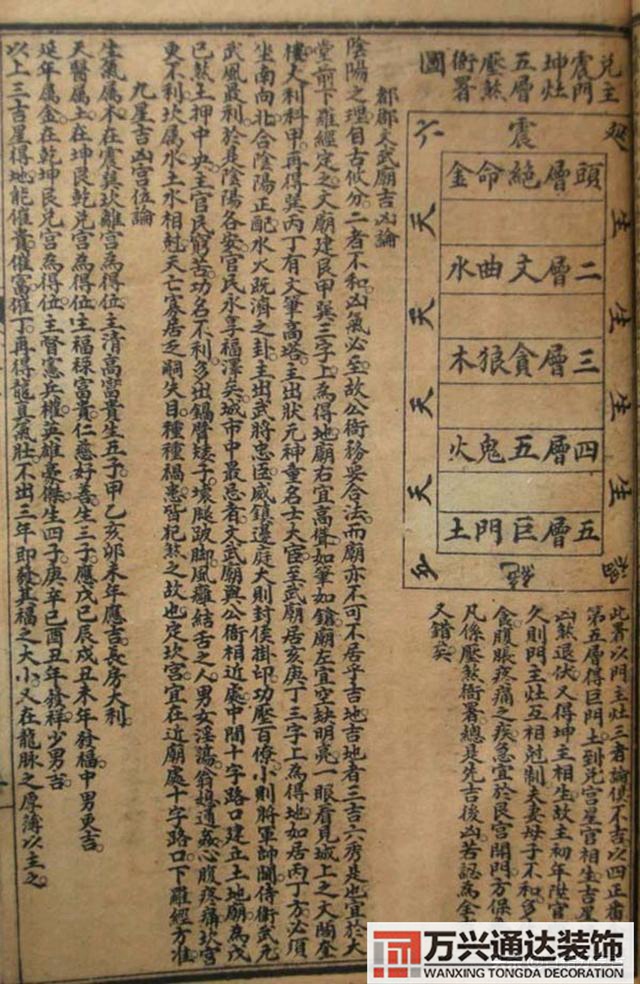 兌主
震門
坤灶
五層
壓煞
衙署
圖
六 震
頭層絕命金
二層文曲水
三層貪狼木
四層五鬼火
五層巨門土
生
生
生
生
天
天
天
天
此署以門主灶三者論俱不吉以四正
第五層得巨門土到兌宮星宮相生吉星
凶煞退伏又得坤主相生故主初年陞官
久則門主灶互相尅制夫妻母子不和多
食腹脹疼痛之疾急宜於艮宮開門方保
凡係壓煞衙署總是先吉後凶若認為全
又錯矣
都郡文武廟吉凶論
陰陽之理自古攸分二者不和凶氣必至故公衙務要合法而廟亦不可不居乎吉地吉地者三吉六秀是也宜於大
堂前下羅經定之文廟建艮甲巽三字上為得地廟右宜高聳如筆如鎗廟左宜空缺明亮一眼看見城上之文閣奎
樓大利科甲再得巽丙丁有文筆高塔主出狀元神童名士大宦至武廟居亥庚丁三字上為得地如居丙丁方必須
坐南向北合陰陽正配水火既濟之卦主出武將忠臣威鎮邊庭大則封侯掛印功壓百僚小則將軍帥閫侍衛武元
武風最利於是陰陽各安官民永享福澤矣城市中最忌者文武廟與公衙相近處中間十字路口建立土地廟為戊
已煞土押中央主官民窮苦功名不利多出鍋臂矮子壞腿跛脚風癱結舌之人男女淫蕩翁媳通姦心腹疼痛坎宮
更不利坎屬水土水相尅夭亡寡居乏嗣失目種種禍患皆犯煞之故也定坎宮宜在近廟處十字路口下羅經方准
九星吉凶宮位論
生氣屬木在震巽坎離宮為得位主清高富貴生五子甲乙亥卯未年應吉長房大利
天醫屬土在坤艮乾兌宮為得位主福祿富貴仁慈好善生三子應戊己辰戌丑未年發福中男更吉
延年屬金在乾坤艮兌宮為得位主督憲兵權英雄豪傑生四子庚辛巳酉丑年發祥少男吉
以上三吉星得地能催貴催富催丁再得龍真氣壯不出三年即發其福之大小又在龍脈之厚薄以主之
万兴通达装饰
WANXING TONGDA DECORATION